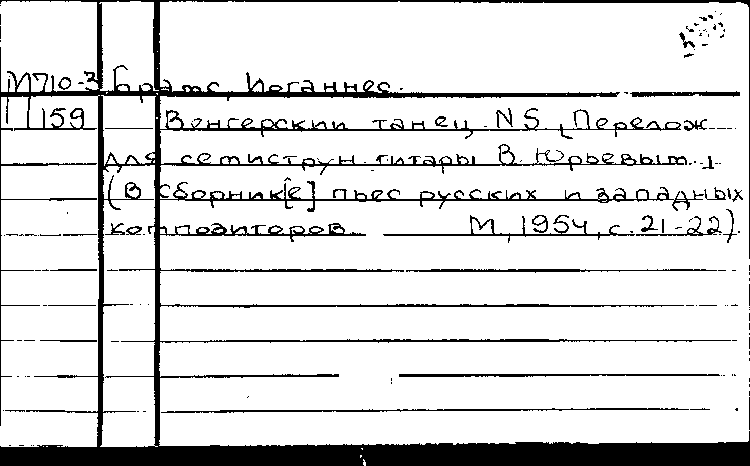 М710-3 Брамс, Иоганнес.
159 Венгерский танец N5 [Перелож.
для семиструн. гитары В. Юрьевым.]
(В сборник[е] пьес русских и западных
композиторов. М., 1954, с. 21-22).